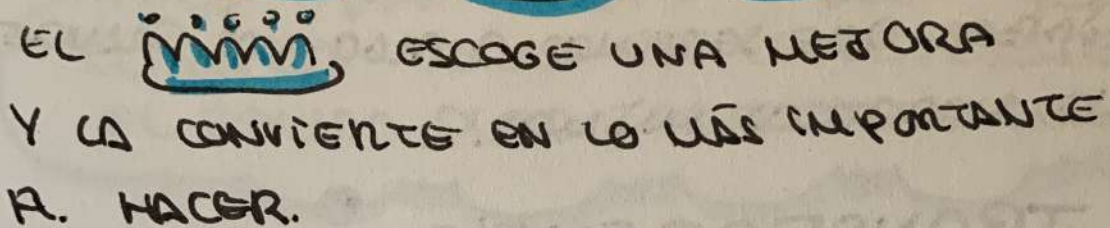 EL ESCOGE UNA MEJORA
Y LA CONVIERTE EN LO MÁS IMPORTANTE
A. HACER.